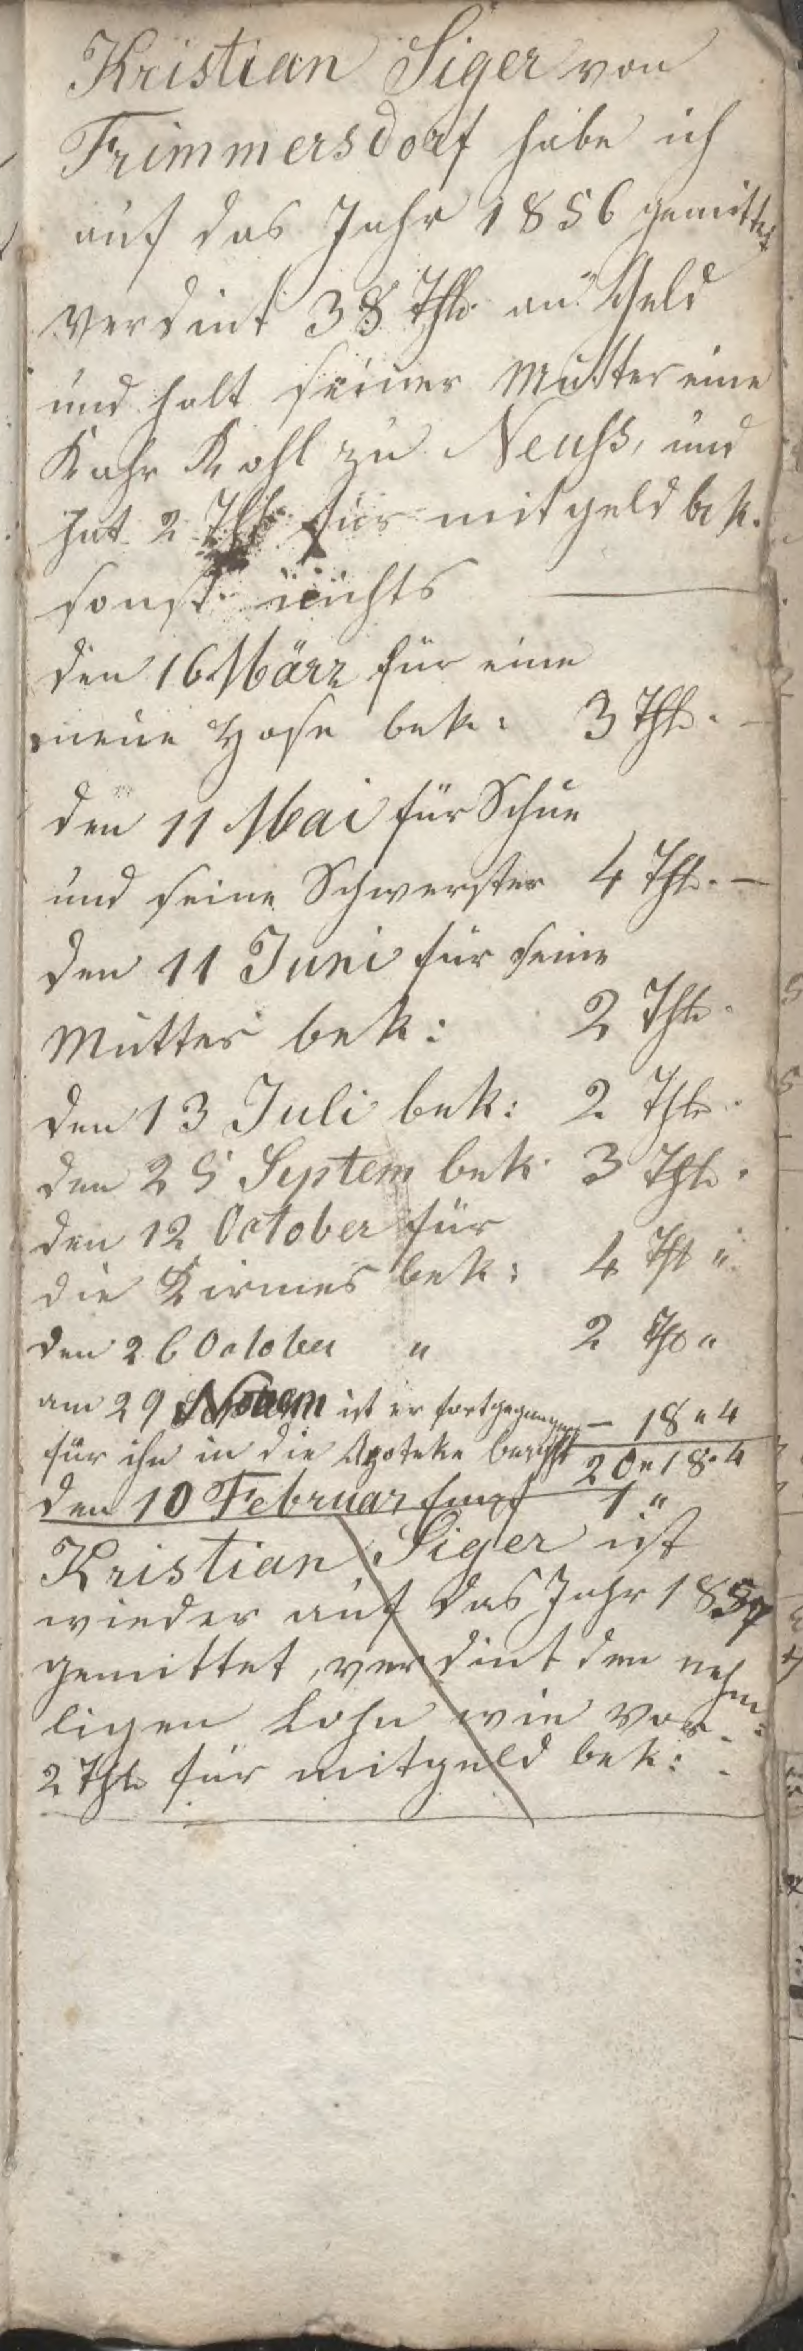 Kristian Siger von
Frimmersdorf habe ich
auf das Jahr 1856 gemittet
verdint 38 Thlr. an Geld
und holt seiner Mutter eine
Kahr Kohl zu Neuss, und
hat 2 Thlr für mitgeld bek.
sonst nichts
den 16 März für eine
neue Hose bek: 3 Thlr. —
den 11 Mai für Schue
und seine Schwerster 4 Thlr. —
den 11 Juni für seine
Mutter bek: 2 Thlr.
den 13 Juli bek: 2 Thlr.
den 25 Septem bek. 3 Thlr.
den 12 October für
die Kirmes bek: 4 Thl "
den 26 October " 2 Thl "
am 29 Novem ist er fortgegangen — 18 " 4
für ihn in die Apoteke bezahlt 20 " 18 " 4
den 10 Februar Empf 1 "
Kristian Siger ist
wieder auf das Jahr 1857
gemittet, verdint den nehm-
ligen Lohn wie vor.
2 Thlr für mitgeld bek: